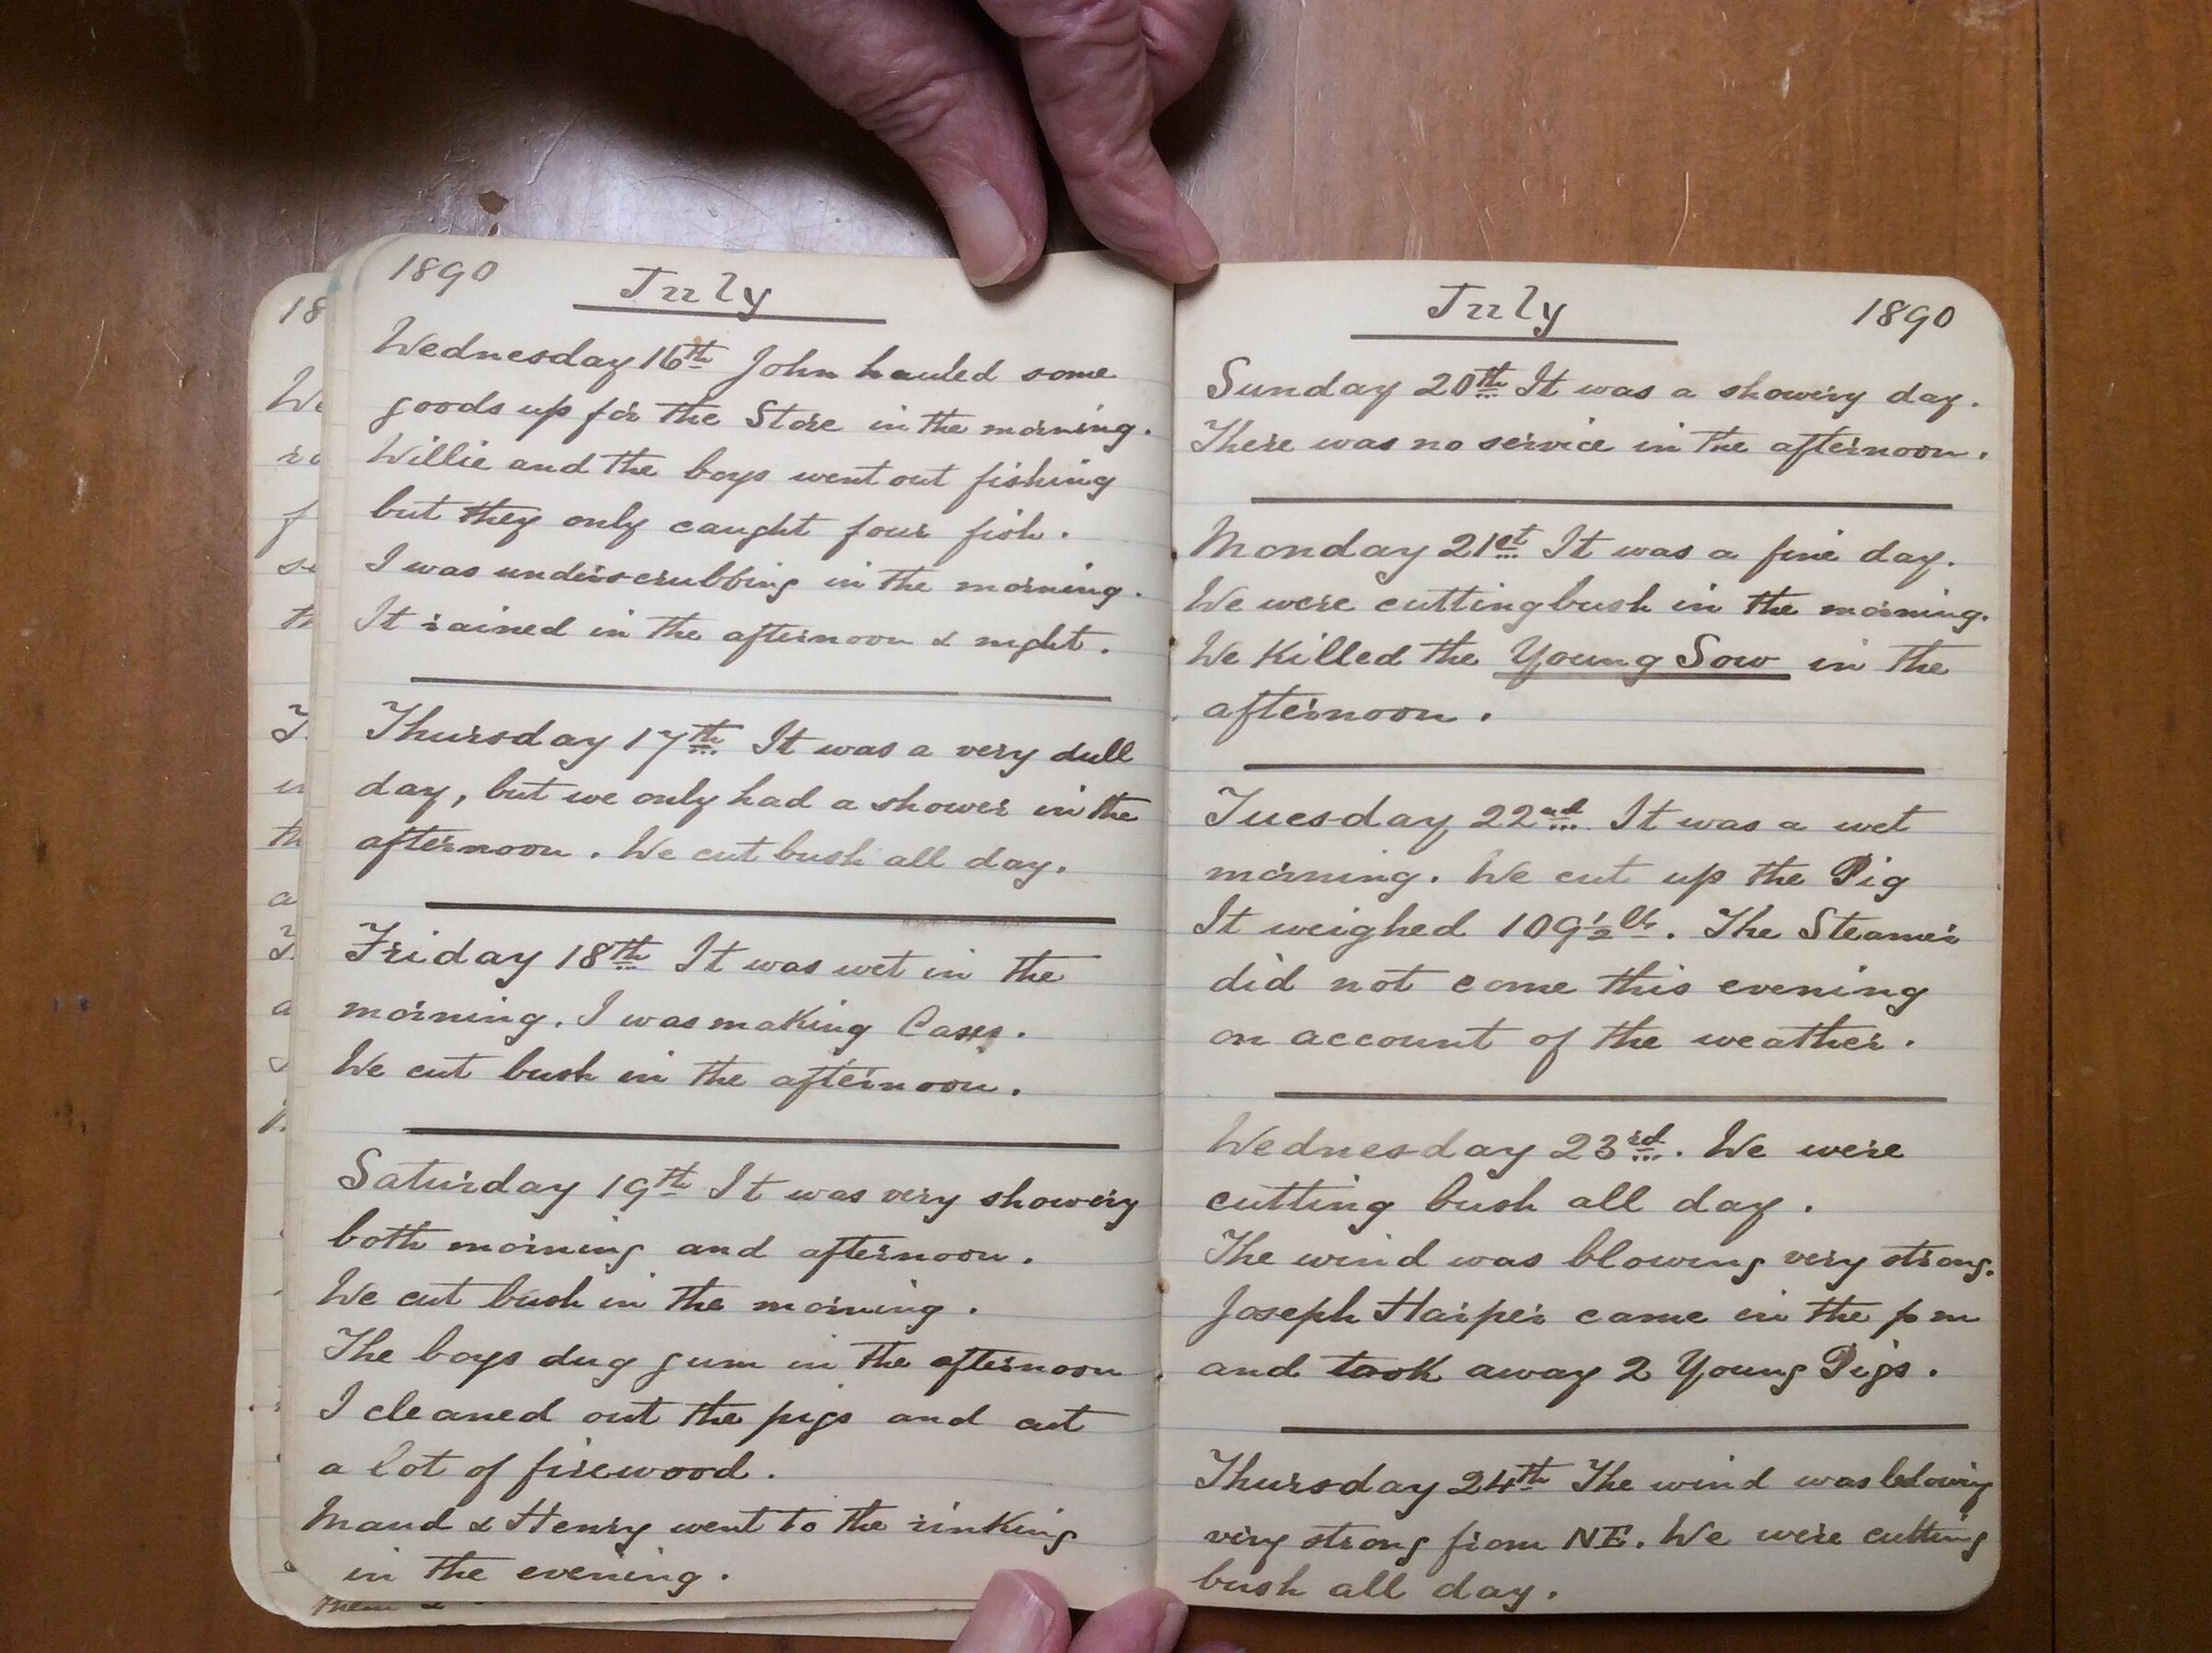 1890
July
Wednesday 16th John hauled some
goods up for the Store in the morning.
Willie and the boys went out fishing
but they only caught four fish.
I was underscrubbing in the morning.
It rained in the afternoon & night.
Thursday 17th It was a very dull
day, but we only had a shower in the
afternoon. We cut bush all day.
Friday 18th It was wet in the
morning. I was making Cases.
We cut bush in the afternoon.
Saturday 19th It was very showery
both morning and afternoon.
We cut bush in the morning.
The boys dug gum in the afternoon
I cleaned out the pigs and cut
a lot of firewood.
Maud & Henry went to the rinking
in the evening.
them &
July
1890
Sunday 20th It was a showery day.
There was no service in the afternoon.
Monday 21st It was a fine day.
We were cutting bush in the morning.
We killed the Young Sow in the
afternoon.
Tuesday 22nd. It was a wet
morning. We cut up the Pig
It weighed 109½ lb. The Steamer
did not come this evening
on account of the weather.
Wednesday 23rd. We were
cutting bush all day.
The wind was blowing very strong.
Joseph Harper came in the pm
and took away 2 Young Pigs.
Thursday 24th The wind was blowing
very strong from NE. We were cutting
bush all day.